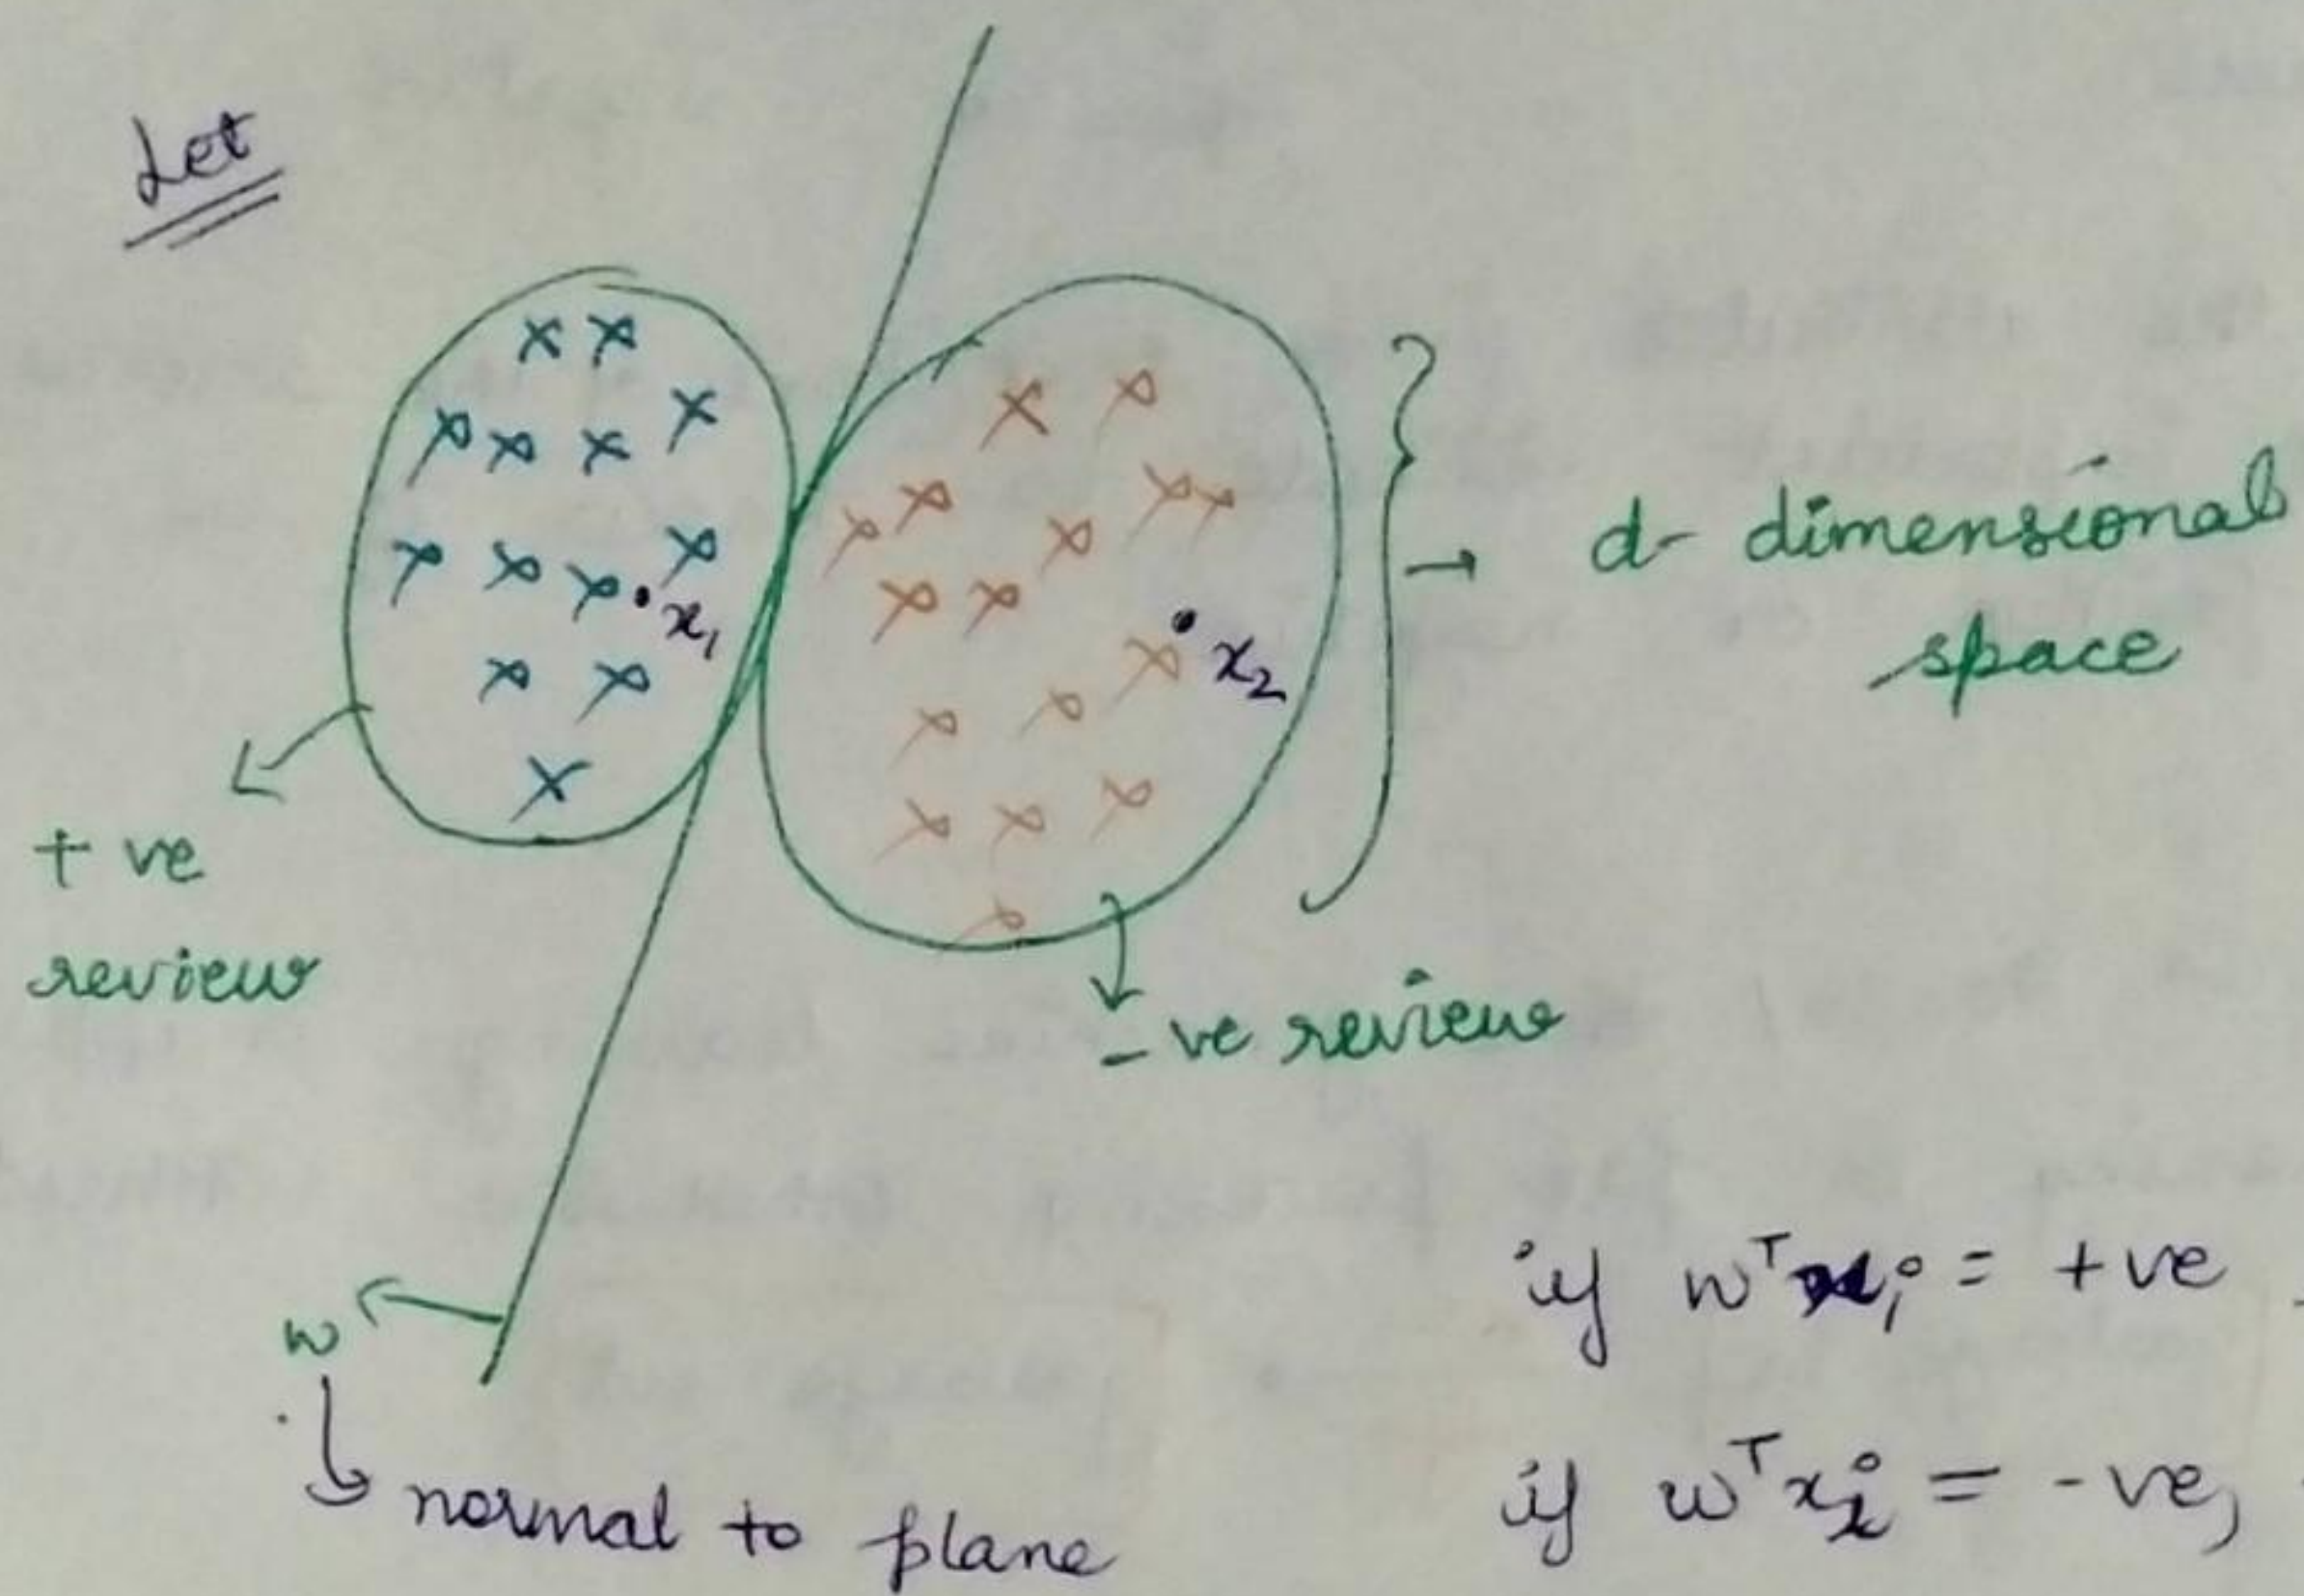 Let
x₁
x₂
d- dimensional
space
+ ve
review
- ve review
w
normal to plane
if wᵀxᵢ = +ve
if wᵀxᵢ = -ve,